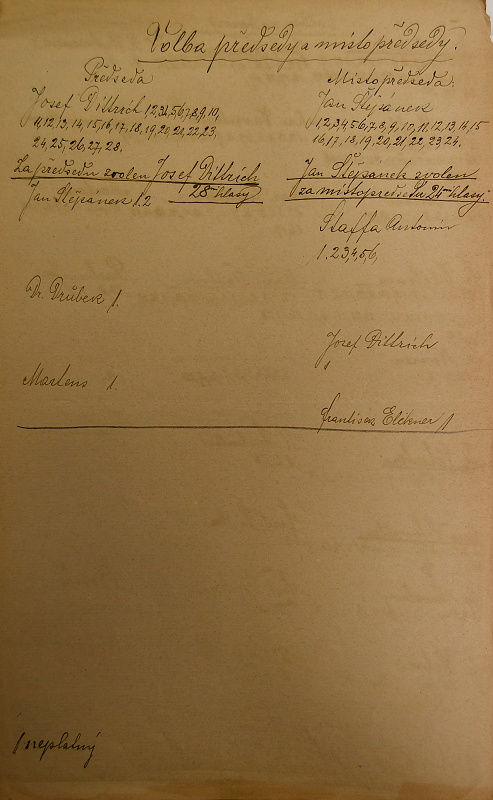 Volba předsedy a místopředsedy.
Předseda
Josef Dittrich 1,2,3,4,5,6,7,8,9,10,
11,12,13, 14, 15, 16, 17, 18, 19, 20, 21, 22, 23,
24, 25, 26, 27, 28.
Za předsedu zvolen Josef Dittrich
28 hlasy
Jan Štěpánek 1.2
Dr. Drůbek 1.
Martens 1.
Místopředseda.
Jan Štěpánek
1,2,3,4,5,6,7,8,9,10,11,12,13,14,15
16, 17, 18, 19, 20, 21, 22, 23, 24,
Jan Štěpánek zvolen
za místopředsedu 24 hlasy.
Staffa Antonín
1.2,3,4,5,6,
Josef Dittrich
1
František Elckner 1
1 neplatný